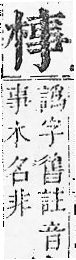 譌字舊註音
事木名非